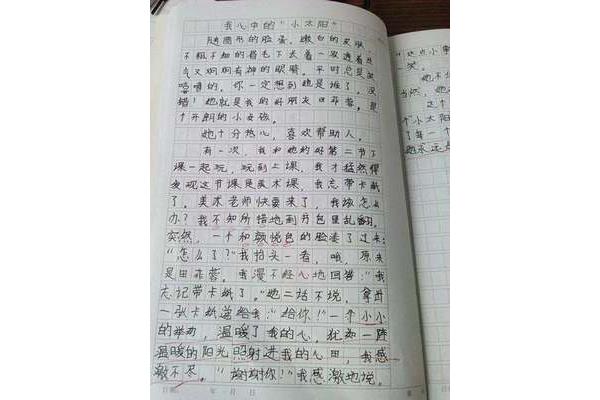 我心中的“小太阳”
随圆形的脸蛋，嫩白的皮肤，
不粗不细的眉毛下长着一双透着灵
气又炯炯有神的眼睛。平时总是笑
嘻嘻的，你一定想到她是谁了，没
错！她就是我的好朋友田菲蓉，是
个开朗的小女孩。
她十分热心，喜欢帮助人。
有一次，我和她约好第二节下
课一起玩，玩到上课，我才猛然
发现这节课是美术课，我忘带卡纸
了。美术老师快要来了，我该怎么
办？我不知所措地到书包里乱翻，
突然，一个和颜悦色的脸凑了过来：
“怎么了？”我抬头一看，哦，原来
是田菲蓉。我漫不经心地回答：“我
忘记带卡纸了。”她二话不说，拿出
一张卡纸递给我：“给你！”一个小小
的举动，温暖了我的心，犹如一阵
温暖的阳光照射进我的心田，我感
激不尽。“谢谢你！”我感激地说。
年 月 日
这点小事
笑。
她不
当你，她
这个
个“小太阳
了每一个
她永远